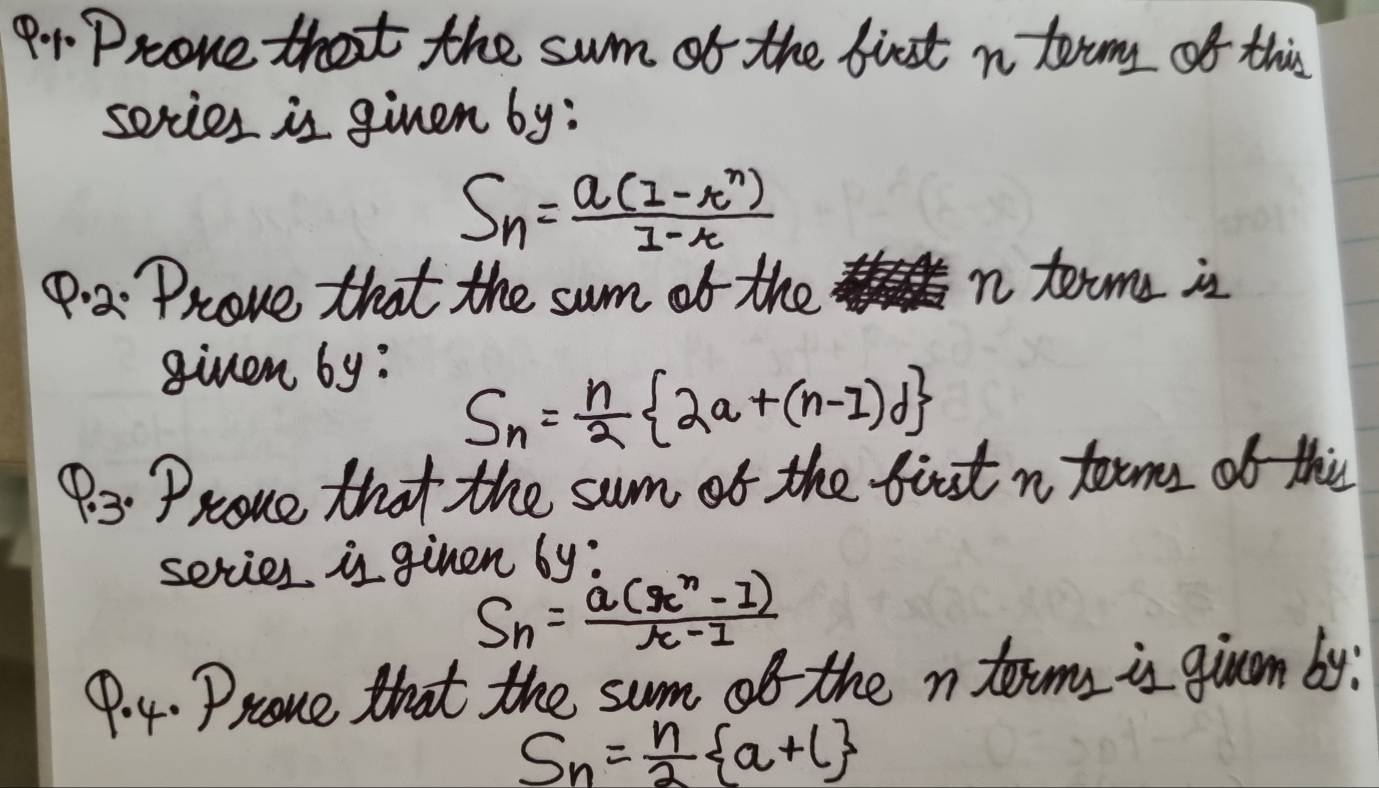 Q.1. Prove that the sum of the first n terms of this
series is given by:
Sn = a(1-rⁿ)/1-r
Q.2. Prove that the sum of the n terms is
given by:
Sn = n/2 {2a+(n-1)d}
Q.3. Prove that the sum of the first n terms of this
series is given by:
Sn = a(rⁿ-1)/r-1
Q.4. Prove that the sum of the n terms is given by:
Sn = n/2 {a+l}